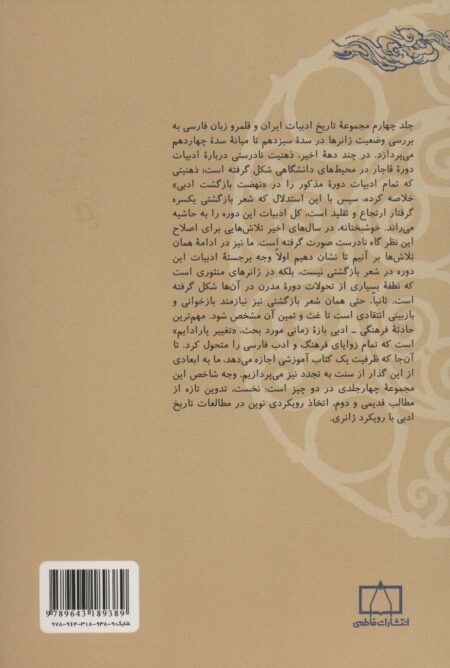 جلد چهارم مجموعهٔ تاریخ ادبیات ایران و قلمرو زبان فارسی به
بررسی وضعیت ژانرها در سدهٔ سیزدهم تا میانهٔ سدهٔ چهاردهم
می‌پردازد. در چند دههٔ اخیر، ذهنیت نادرستی دربارهٔ ادبیات
دورهٔ قاجار در محیط‌های دانشگاهی شکل گرفته است: ذهنیتی
که تمام ادبیات دورهٔ مذکور را در «نهضت بازگشت ادبی»
خلاصه کرده، سپس با این استدلال که شعر بازگشتی یکسره
گرفتار ارتجاع و تقلید است، کل ادبیات این دوره را به حاشیه
می‌راند. خوشبختانه، در سال‌های اخیر تلاش‌هایی برای اصلاح
این نظرگاه نادرست صورت گرفته است. ما نیز در ادامهٔ همان
تلاش‌ها بر آنیم تا نشان دهیم اولاً وجه برجستهٔ ادبیات این
دوره در شعر بازگشتی نیست، بلکه در ژانرهای منثوری است
که نطفهٔ بسیاری از تحولات دورهٔ مدرن در آن‌ها شکل گرفته
است. ثانیاً، حتی همان شعر بازگشتی نیز نیازمند بازخوانی و
بازبینی انتقادی است تا غث و ثمین آن مشخص شود. مهم‌ترین
حادثهٔ فرهنگی ـ ادبی بازهٔ زمانی مورد بحث، «تغییر پارادایم»
است که تمام زوایای فرهنگ و ادب فارسی را متحول کرد. تا
آن‌جا که ظرفیت یک کتاب آموزشی اجازه می‌دهد، ما به ابعادی
از این گذار از سنت به تجدد نیز می‌پردازیم. وجه شاخص این
مجموعهٔ چهارجلدی در دو چیز است: نخست، تدوین تازه از
مطالب قدیمی و دوم، اتخاذ رویکردی نوین در مطالعات تاریخ
ادبی با رویکرد ژانری.
انتشارات فاطمی
9 789643 189389
شابک: ۹-۹۳۸-۳۱۸-۹۶۴-۹۷۸